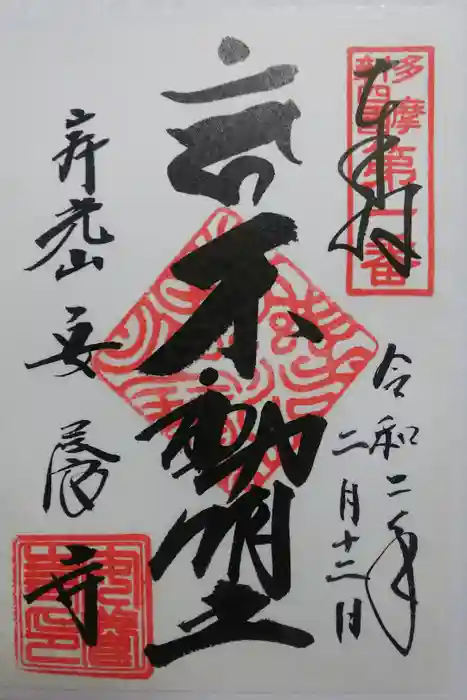 奉拝
多摩新四国第一番
令和二年
二月十二日
不動明王
斉光山 安養寺